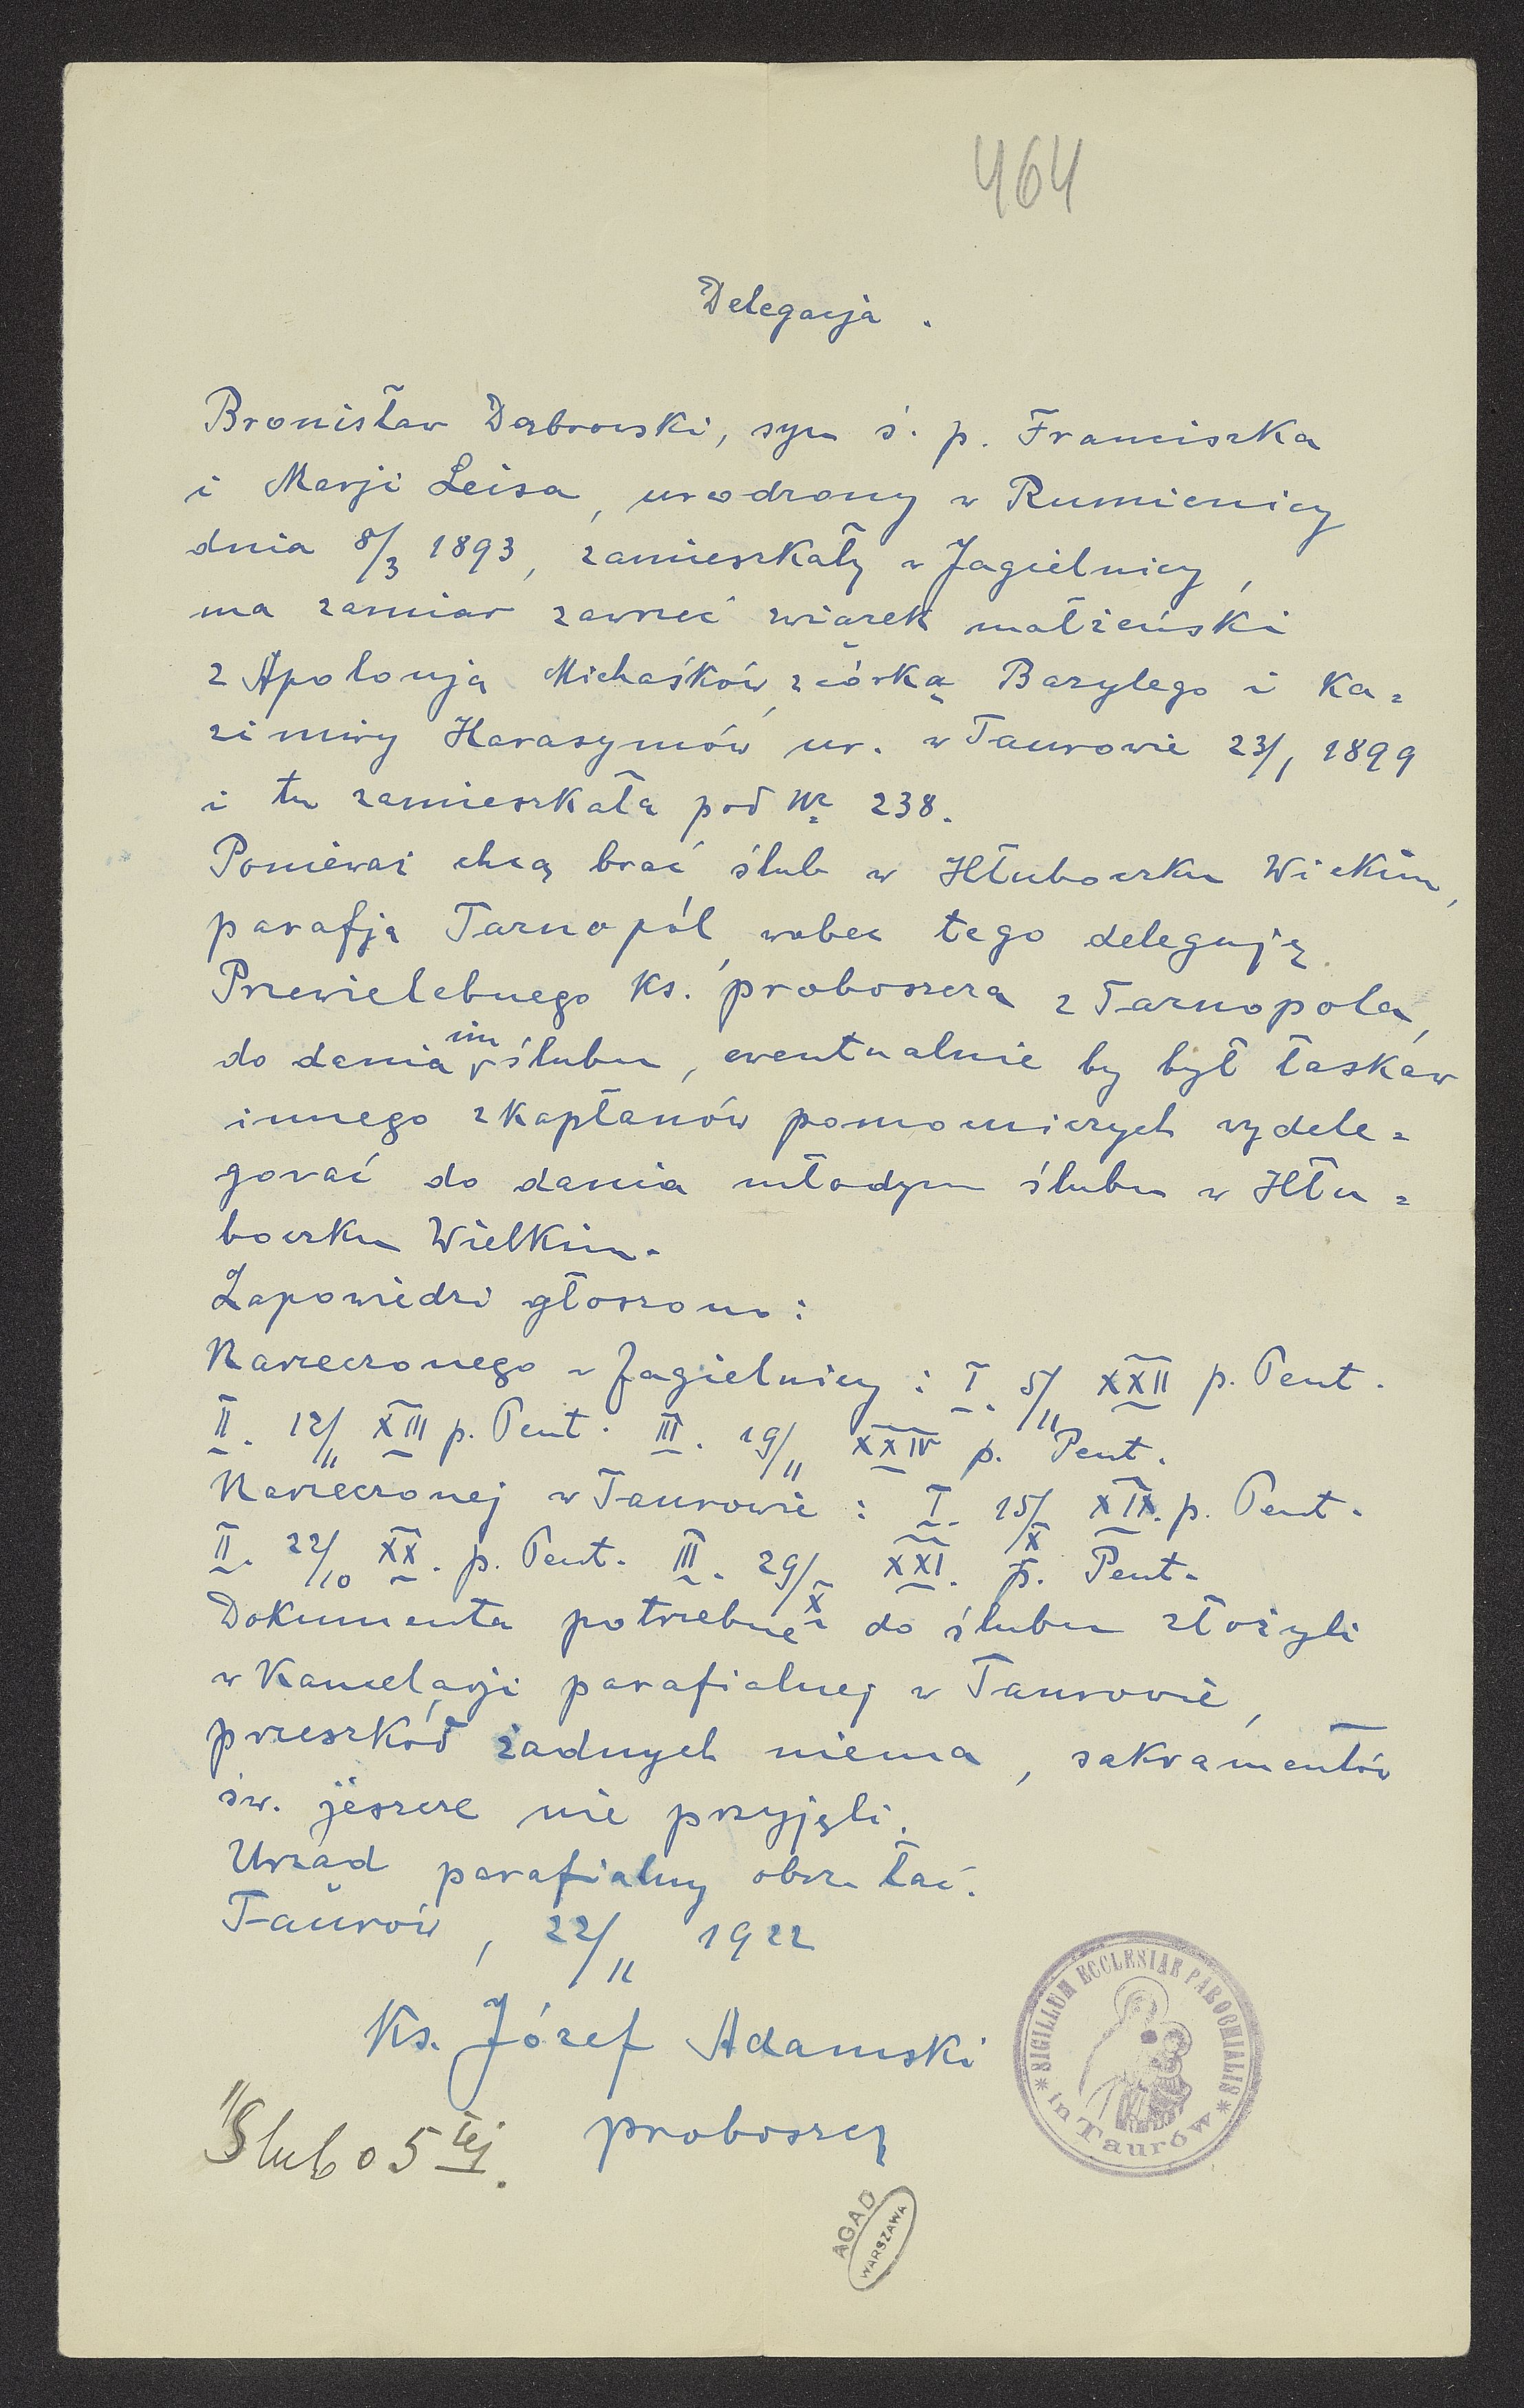 464
Delegacja .
Bronisław Dąbrowski, syn ś. p. Franciszka
i Marji Leisa, urodzony w Rumienicy
dnia 8/3 1893, zamieszkały w Jagielnicy,
ma zamiar zawrzeć związek małżeński
z Apolonją Michaśków, córką Bazylego i Ka=
zimiry Harasymów ur. w Taurowie 23/1 1899
i tu zamieszkałą pod Nr 238.
Ponieważ chcą brać ślub w Hłuboczku Wielkim,
parafja Tarnopól, wobec tego deleguję
Przewielebnego Ks. proboszcza z Tarnopola,
do dania im ślubu, ewentualnie by był łaskaw
innego z kapłanów pomocniczych wydele=
gować do dania młodym ślubu w Hłu=
boczku Wielkim.
Zapowiedzi głoszono:
Narzeczonego w Jagielnicy: I. 5/11 XXII p. Pent.
II. 12/11 XIII p. Pent. III. 19/11 XXIV p. Pent.
Narzeczonej w Taurowie: I. 15/X XIX. p. Pent.
II. 22/10 XX. p. Pent. III. 29/X XXI. p. Pent.
Dokumenta potrzebne do ślubu złożyli
w Kancelarji parafialnej w Taurowie,
przeszkód żadnych niema, sakramentów
św. jeszcze nie przyjęli.
Urząd parafialny obrz. łać.
Taurów, 22/11 1922
Ks. Józef Adamski
proboszcz
Ślub o 5 tej.
* SIGILLUM ECCLESIAE PAROCHIALIS *
in Taurów
AGAD
WARSZAWA